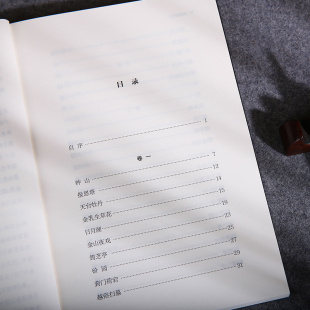 目 录
自 序 1
卷 一
钟 山 7
报恩塔 12
天台牡丹 14
金乳生草花 15
日月湖
金山夜戏 23
筠芝亭 25
砎 园 27
葑门荷宕 29
越俗扫墓 32